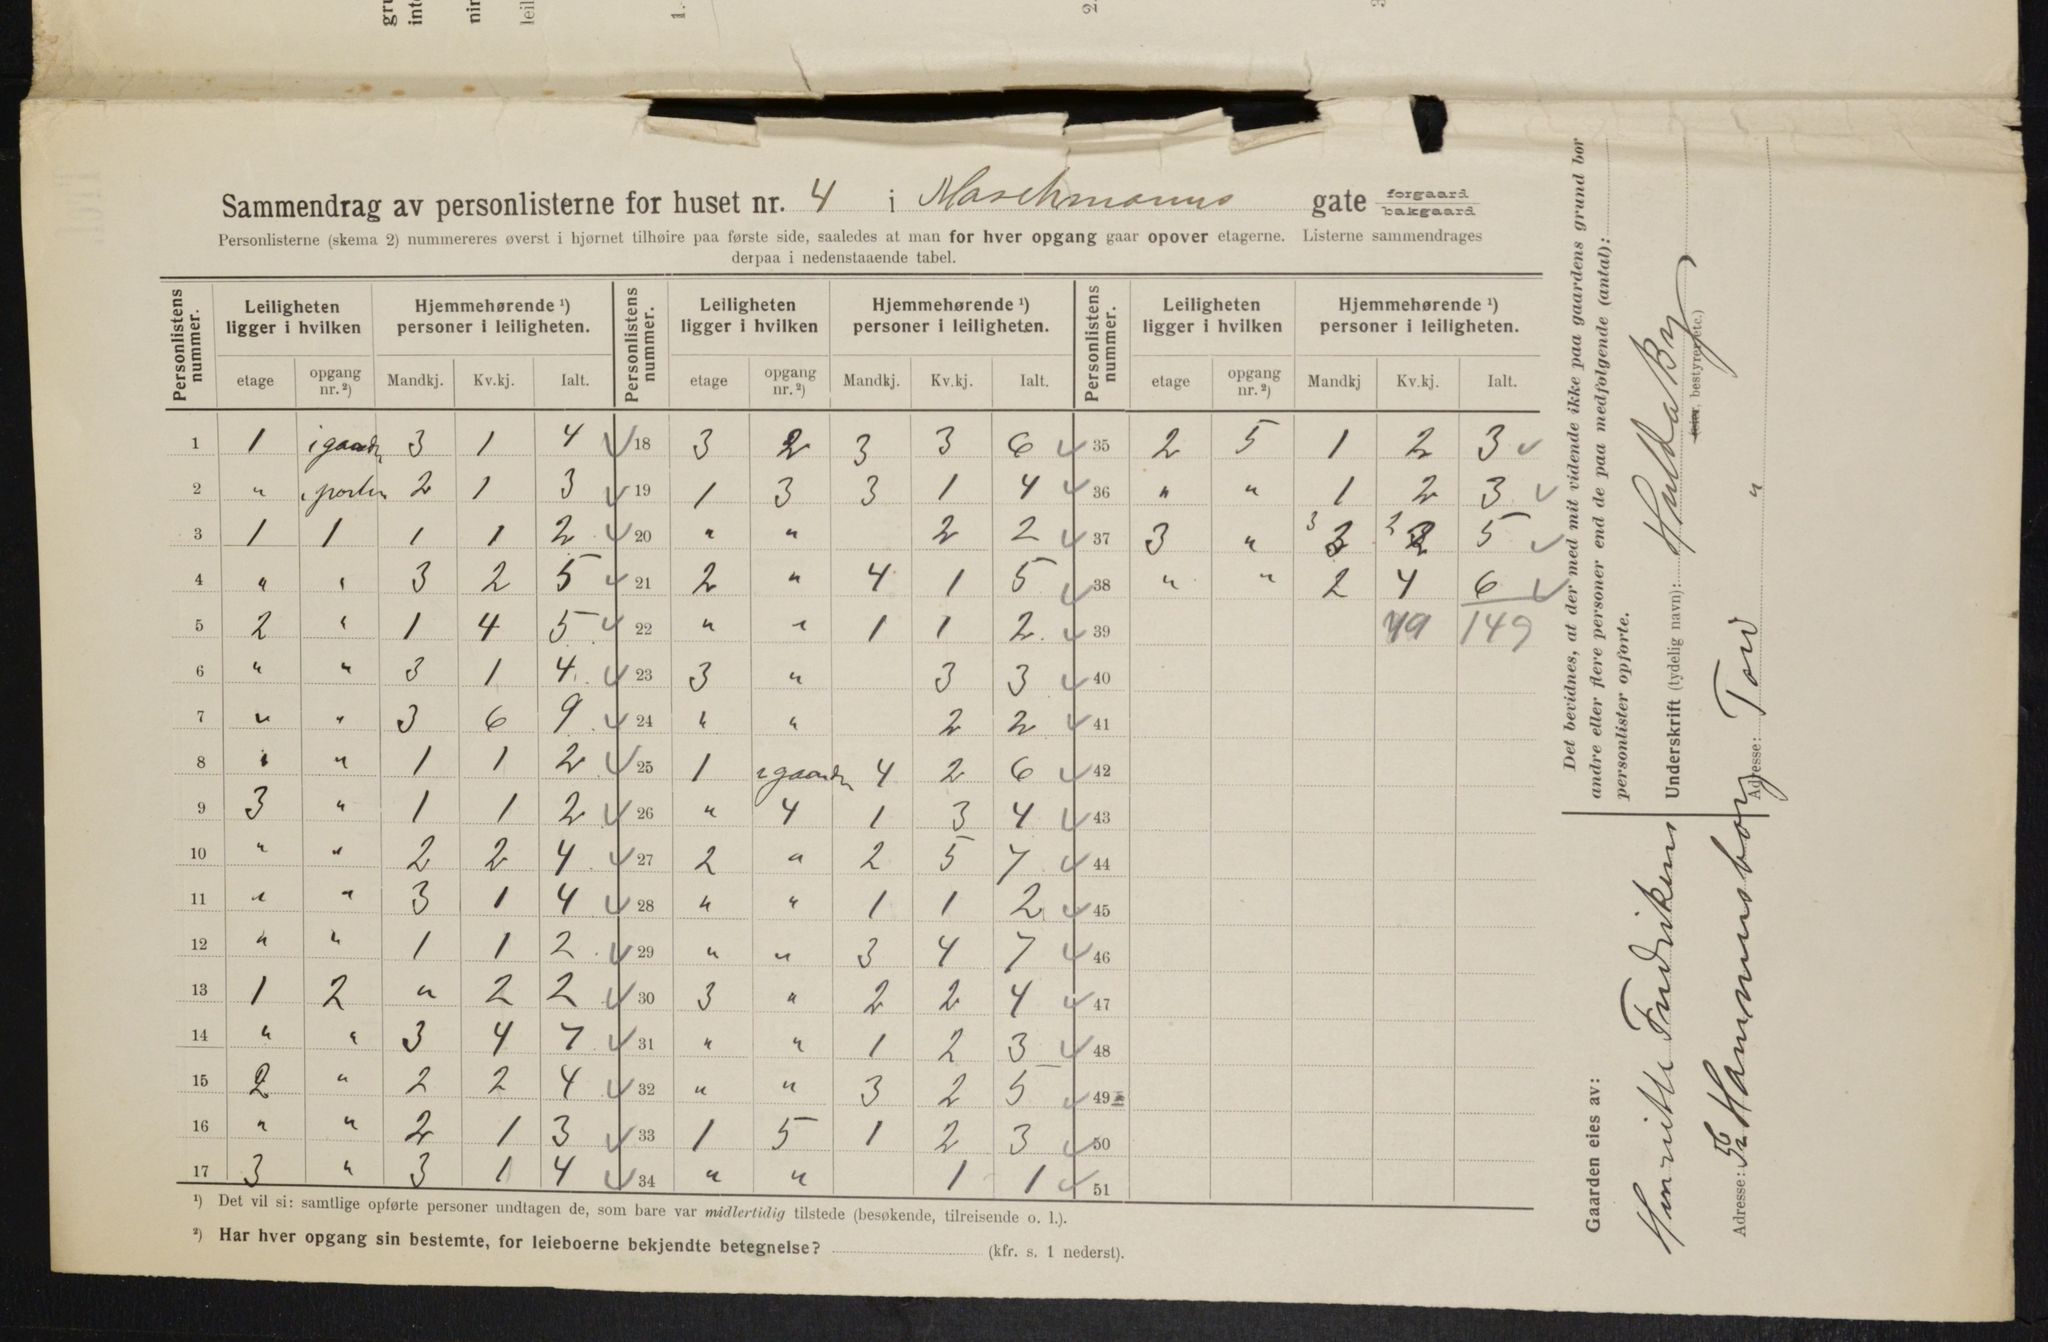 Sammendrag av personlisterne for huset nr. 4 i Maschmanns gate forgaard bakgaard
Personlisterne (skema 2) nummereres øverst i hjørnet tilhøire paa første side, saaledes at man for hver opgang gaar opover etagerne. Listerne sammendrages
derpaa i nedenstaaende tabel.
Personlistens nummer. Leiligheten ligger i hvilken Hjemmehørende ¹) personer i leiligheten. Personlistens nummer. Leiligheten ligger i hvilken Hjemmehørende ¹) personer i leiligheten. Personlistens nummer. Leiligheten ligger i hvilken Hjemmehørende ¹) personer i leiligheten.
etage opgang nr.²) Mandkj. Kv.kj. Ialt. etage opgang nr.²) Mandkj. Kv.kj. Ialt. etage opgang nr.²) Mandkj Kv.kj. Ialt.
1 1 i gaarden 3 1 4 ✓ 18 3 2 3 3 6 ✓ 35 2 5 1 2 3 ✓
2 " i porten 2 1 3 ✓ 19 1 3 3 1 4 ✓ 36 " " 1 2 3 ✓
3 1 1 1 1 2 ✓ 20 " " 2 2 ✓ 37 3 " 3 2 5 ✓
4 " " 3 2 5 ✓ 21 2 " 4 1 5 ✓ 38 " " 2 4 6 ✓
5 2 " 1 4 5 ✓ 22 " " 1 1 2 ✓ 39 149
6 " " 3 1 4 ✓ 23 3 " 3 3 ✓ 40
7 " " 3 6 9 ✓ 24 " " 2 2 ✓ 41
8 " " 1 1 2 ✓ 25 1 i gaarden 4 2 6 ✓ 42
9 3 " 1 1 2 ✓ 26 " 4 1 3 4 ✓ 43
10 " " 2 2 4 ✓ 27 2 " 2 5 7 ✓ 44
11 " " 3 1 4 ✓ 28 " " 1 1 2 ✓ 45
12 " " 1 1 2 ✓ 29 " " 3 4 7 ✓ 46
13 1 2 " 2 2 ✓ 30 3 " 2 2 4 ✓ 47
14 " " 3 4 7 ✓ 31 " " 1 2 3 ✓ 48
15 2 " 2 2 4 ✓ 32 " " 3 2 5 ✓ 49
16 " " 2 1 3 ✓ 33 1 5 1 2 3 ✓ 50
17 3 " 3 1 4 ✓ 34 " " 1 1 ✓ 51
¹) Det vil si: samtlige opførte personer undtagen de, som bare var midlertidig tilstede (besøkende, tilreisende o. l.).
²) Har hver opgang sin bestemte, for leieboerne bekjendte betegnelse? (kfr. s. 1 nederst).
Det bevidnes, at der med mit vidende ikke paa gaardens grund bor
andre eller flere personer end de paa medfølgende (antal):
personlister opførte.
Underskrift (tydelig navn): Hulda Bry
eier, bestyrer (etc.)
Adresse: "
Gaarden eies av:
Henriette Fredriksens
Adresse: Hammersborg